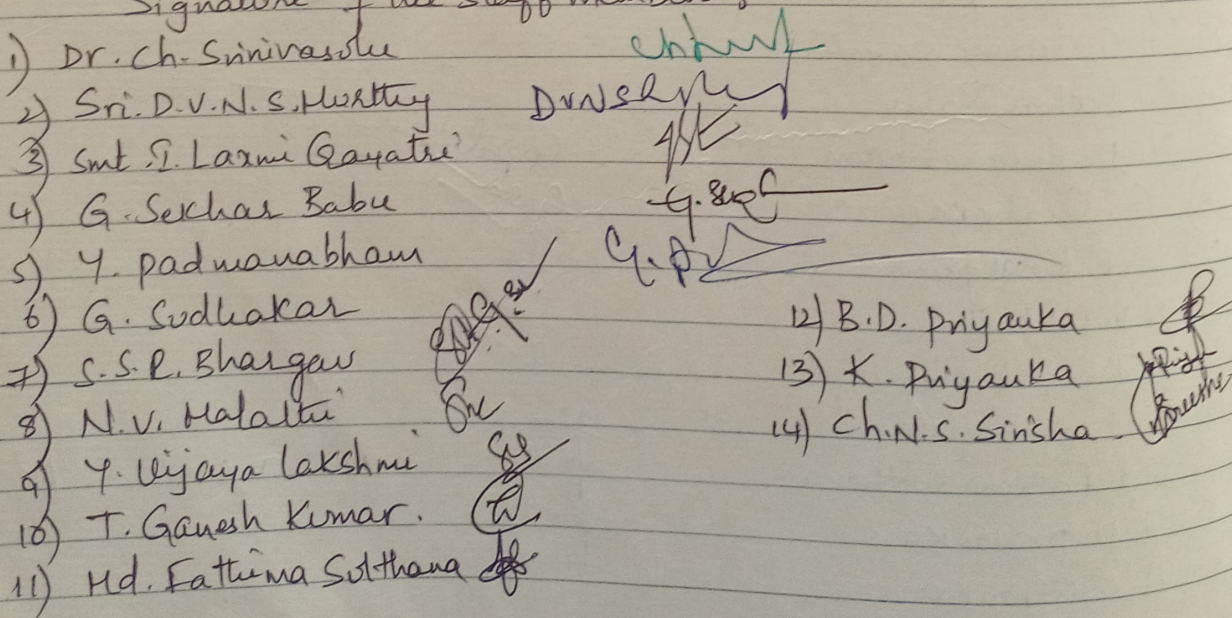 Signature of the staff members
1) Dr. Ch. Srinivasulu
2) Sri. D.V.N.S. Murthy DVNSR
3) Smt. I. Laxmi Gayatri
4) G. Sekhar Babu G.
5) Y. Padmanabham
6) G. Sudhakar
7) S.S.R. Bhargav
8) N.V. Malathi
9) Y. Vijaya Lakshmi
10) T. Ganesh Kumar.
11) Md. Fathima Sulthana
12) B.D. Priyanka
13) K. Priyanka
14) Ch.N.S. Sirisha